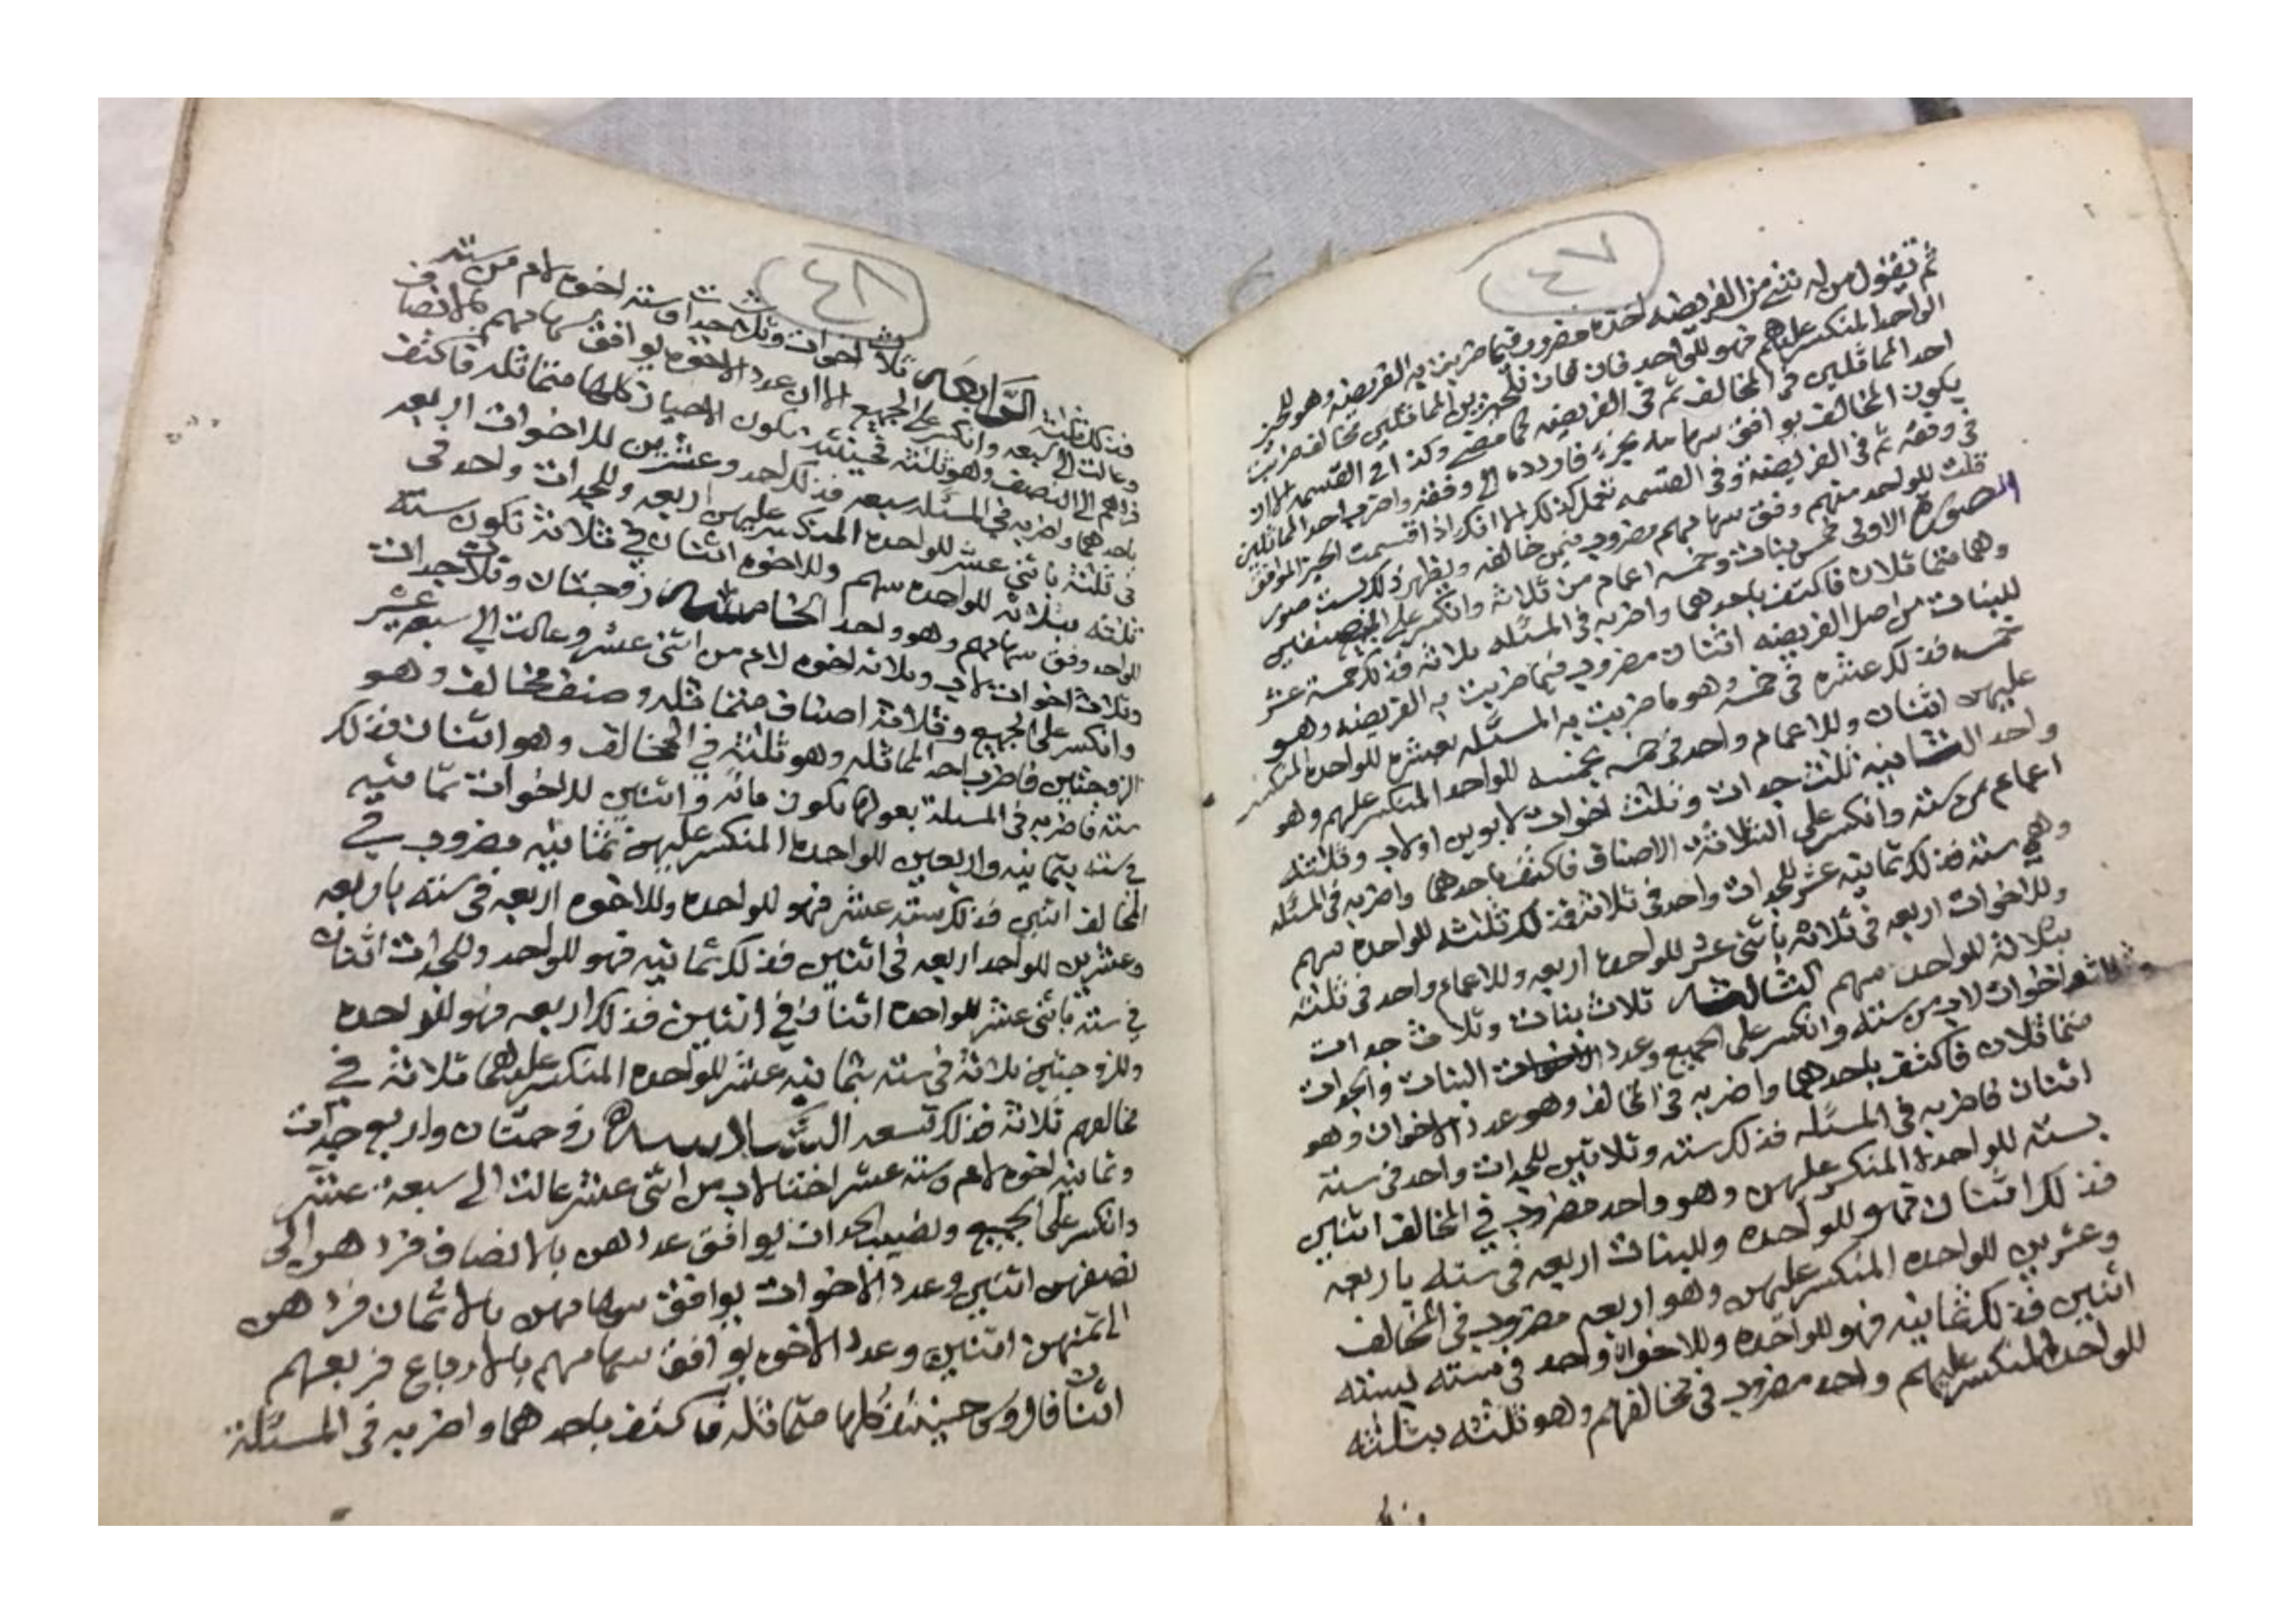 ٤٧
ثم تقول من له شي من الفريضه اخذه مضروب فيما ضربت به الفريضه وهو للجز
الواحد المنكسر عليهم فهو للواحد فان كان للحيزين المماثلين مخالف ضربت
احد المماثلين في المخالف ثم في الفريضه كما مضى وكذا في القسمه الا ان
يكون المخالف يوافق سهامه بجزء فاردده الى وفقه واضرب احد المماثلين
في وفقه ثم في الفريضة وفي القسمه تعمل كذلك الا انك اذا قسمت الحيز الموافق
قلت للواحد منهم وفق سهامهم مضروب فيمن خالفه ويظهر ذلك بست صور
الصورة الاولى خمس بنات وخمسه اعمام من ثلاثه وانكسر على الصنفين
وهما متماثلان فاكتف باحدهما واضربه في المسئله ثلاثه فذلك خمسة عشر
للبنات من اصل الفريضه اثنان مضروب فيما ضربت به الفريضه وهو
خمسه فذلك عشره في خمسه وهو ما ضربت به المسئله بعشره للواحده المنكسر
عليهن اثنان وللاعمام واحد في خمسه بخمسه للواحد المنكسر عليهم وهو
واحد الثانيه ثلث جدات وثلث اخوات لابوين او لاب وثلثه
اعمام من سته وانكسر على الثلاثة الاصناف فاكتف باحدهما واضربه في المسئله
وهي سته فذلك ثمانيه عشر للجدات واحد في ثلاثه فذلك ثلثه للواحده سهم
وللاخوات اربعه في ثلاثه باثني عشر للواحده اربعه وللاعمام واحد في ثلثه
بثلاثه للواحد سهم الثالثه ثلاث بنات وثلاث جدات
اخوات لاب من سته وانكسر على الجميع وعدد البنات والجدات
متماثلان فاكتف باحدهما واضربه في المخالف وهو عدد الاخوات وهو
اثنان فاضربه في المسئله فذلك سته وثلاثين للجدات واحد في سته
بسته للواحدة المنكسر عليهن وهو واحد مضروب في المخالف اثنين
فذلك اثنان فهو للواحده وللبنات اربعه في سته باربعه
وعشرين للواحده المنكسر عليهن وهو اربعه مضروب في المخالف
اثنين فذلك ثمانيه فهو للواحده وللاخوات واحد في سته بسته
للواحد المنكسر عليهم واحد مضروب في مخالفهم وهو ثلثه بثلثه
٤٨
فذلك ثلثه الرابعه ثلاث اخوات وثلاث جدات وسته اخوه لام من سته
وعالت الى سبعه وانكسر على الجميع الا ان عدد الاخوه يوافق سهامهم بالانصاف
فردهم الى النصف وهو ثلثه فحينئذ تكون الاحياز كلها متماثله فاكتف
باحدهما واضربه في المسئله سبعه فذلك احد وعشرين للاخوات اربعه
في ثلثه باثني عشر للواحده المنكسر عليهن اربعه وللجدات واحد في
ثلثه بثلاثه للواحده سهم وللاخوه اثنان في ثلاثة تكون سته
للواحد وفق سهامهم وهو واحد الخامسه زوجتان وثلاث جدات
وثلاث اخوات لاب وثلاثه اخوه لام من اثنى عشر وعالت الى سبعه عشر
وانكسر على الجميع وثلاثة اصناف متماثله وصنف مخالف وهو
الزوجتين فاضرب احد المماثله وهو ثلثه في المخالف وهو اثنان فذلك
سته فاضربه في المسئلة بعولها تكون مائه واثنين للاخوات ثمانيه
في سته بثمانيه واربعين للواحده المنكسر عليهن ثمانيه مضروب في
المخالف اثنين فذلك سته عشر فهو للواحده وللاخوه اربعه في سته باربعه
وعشرين للواحد اربعه في اثنين فذلك ثمانيه فهو للواحد وللجدات اثنان
في سته باثني عشر للواحده اثنان في اثنين فذلك اربعه فهو للواحده
وللزوجتين ثلاثة في سته بثمانيه عشر للواحده المنكسر عليهما ثلاثة في
مخالفهم ثلاثة فذلك تسعه السادسه زوجتان واربع جدات
وثمانيه اخوه لام وسته عشر اختا لاب من اثنى عشر عالت الى سبعة عشر
وانكسر على الجميع ونصيب الجدات يوافق عددهن بالانصاف فردهن الى
نصفهن اثنين وعدد الاخوات يوافق سهامهن بالاثمان فردهن
الى ثمنهن اثنين وعدد الاخوه يوافق سهامهم بالارباع فربعهم
اثنان فالروس حينئذ كلها متماثله فاكتف باحدهما واضربه في المسئلة